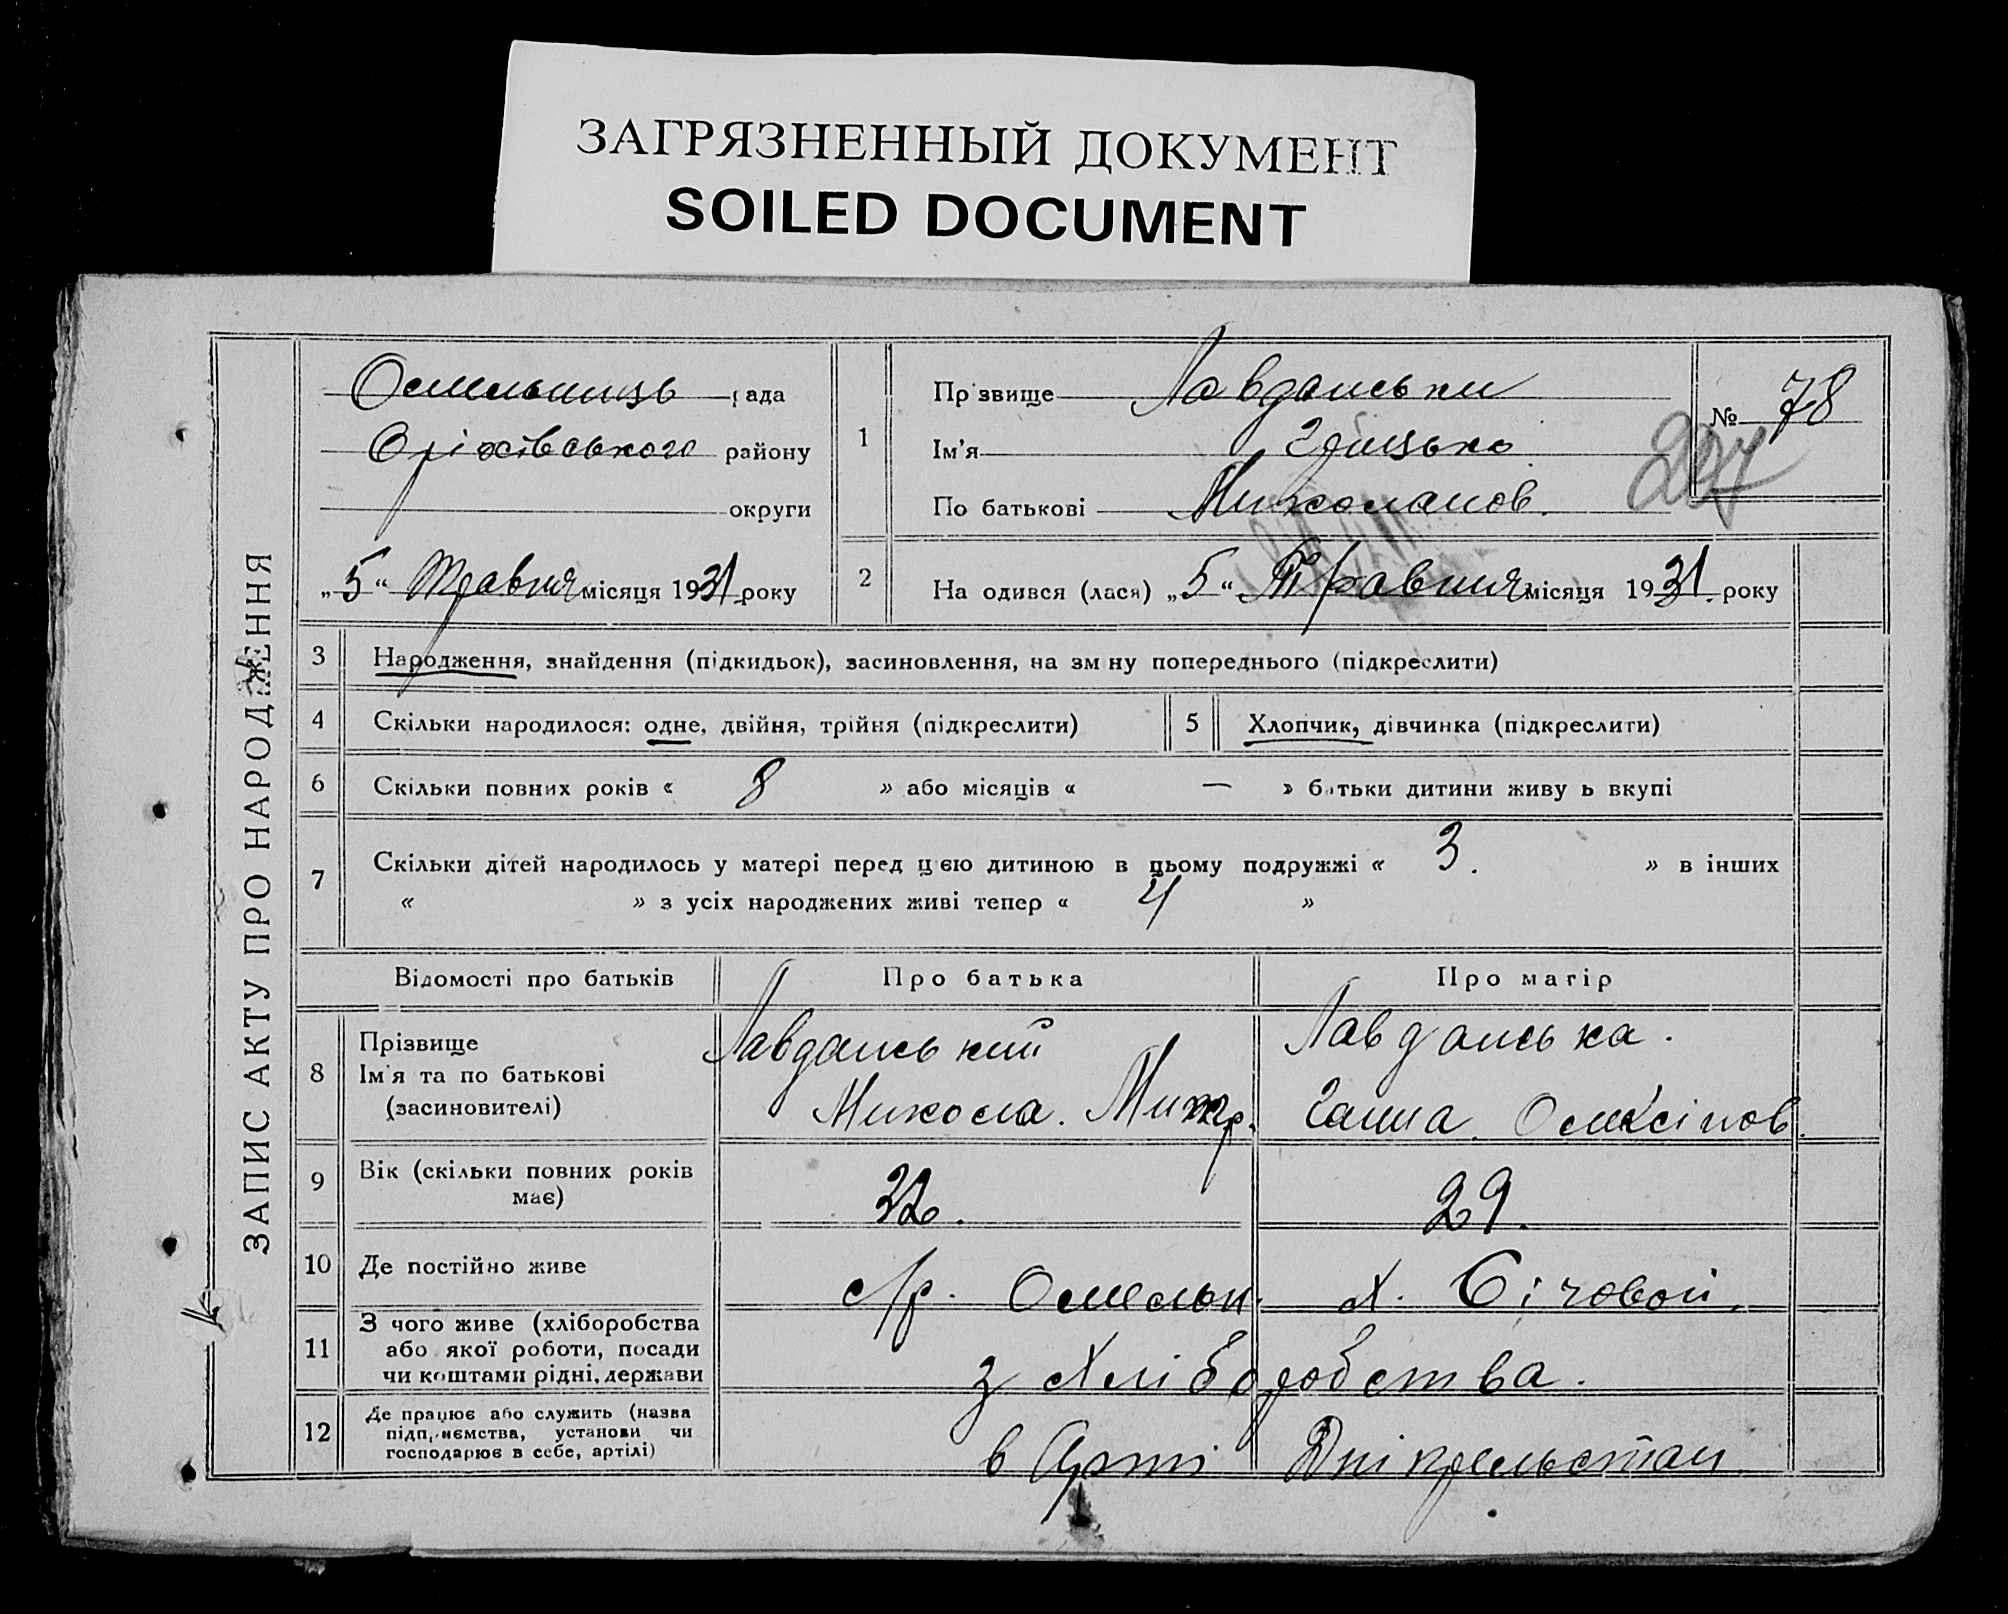 ЗАГРЯЗНЕННЫЙ ДОКУМЕНТ
SOILED DOCUMENT
ЗАПИС АКТУ ПРО НАРОДЖЕННЯ
Омельниць рада
Оріхівського району
округи
„5“ Травня місяця 1931 року
1
Прізвище Лавданськи
Ім'я Грицько
По батькові Миколаиов.
№ 78
227
2 Народився (лася) „5“ Травня місяця 1931 року
3 Народження, знайдення (підкидьок), засиновлення, на зміну попереднього (підкреслити)
4 Скільки народилося: одне, двійня, трійня (підкреслити) 5 Хлопчик, дівчинка (підкреслити)
6 Скільки повних років « 8 » або місяців « — » батьки дитини живуть вкупі
7 Скільки дітей народилось у матері перед цією дитиною в цьому подружжі « 3. » в інших
« » з усіх народжених живі тепер « 4 »
Відомості про батьків Про батька Про матір
8 Прізвище
Ім'я та по батькові
(засиновителі)
Лавданський
Микола.
Лавданська.
Ганна
9 Вік (скільки повних років
має)
32. 29.
10 Де постійно живе
с/р. Омельн. х. Січовой.
11 З чого живе (хліборобства
або якої роботи, посади
чи коштами рідні, держави
з хліборобства.
12 Де працює або служить (назва
підприємства, установи чи
господарює в себе, артілі)
в Арті Дніпрельстан